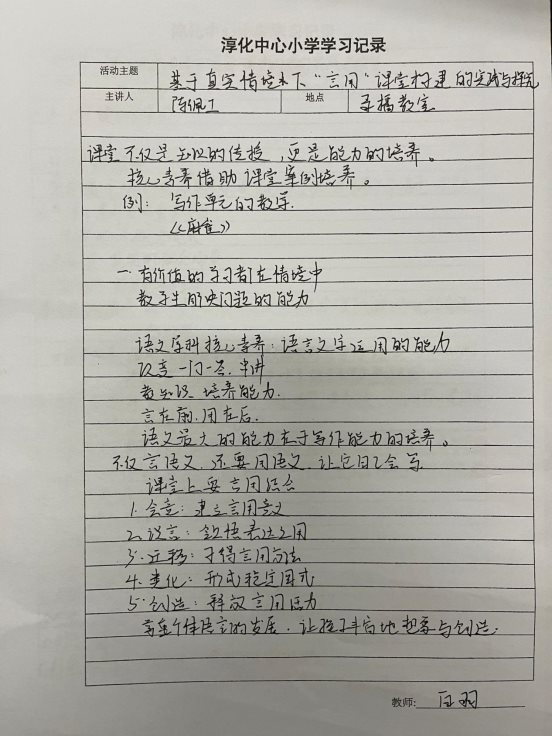 淳化中心小学学习记录
活动主题 基于真实情境下“言用”课堂构建的实践与探究
主讲人 陈佩工 地点 录播教室
课堂不仅是知识的传授，更是能力的培养。
核心素养借助课堂案例培养。
例：写作单元的教学.
《麻雀》
一 有价值的学习都在情境中
教学生解决问题的能力
语文学科核心素养：语言文字运用的能力
改变一问一答.串讲
教知识 培养能力.
言在前.用在后.
语文最大的能力在于写作能力的培养。
不仅言语文.还要用语文.让它自己会写
课堂上要言用结合
1.会意：建立言用意义
2.议言：领悟表达之用
3.迁移：习得言用方法
4.类化：形成稳定图式
5.创造：释放言用活力
尊重个体语言的发展.让孩子丰富地想象与创造.
教师: 白羽